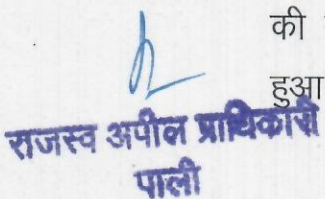 की
हुआ
राजस्व अपील प्राधिकारी
पाली